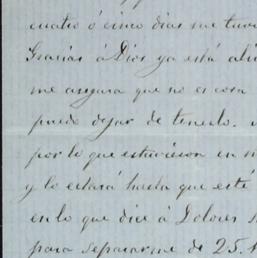 cuatro ó cinco dias me tuvi
Gracias á Dios ya está ali
me asegura que no es cosa
puedo dejar de tenerlo.
por lo que estuvieron en m
y lo estará hasta que esté
en lo que dice á Dolores
para separarme de 25.